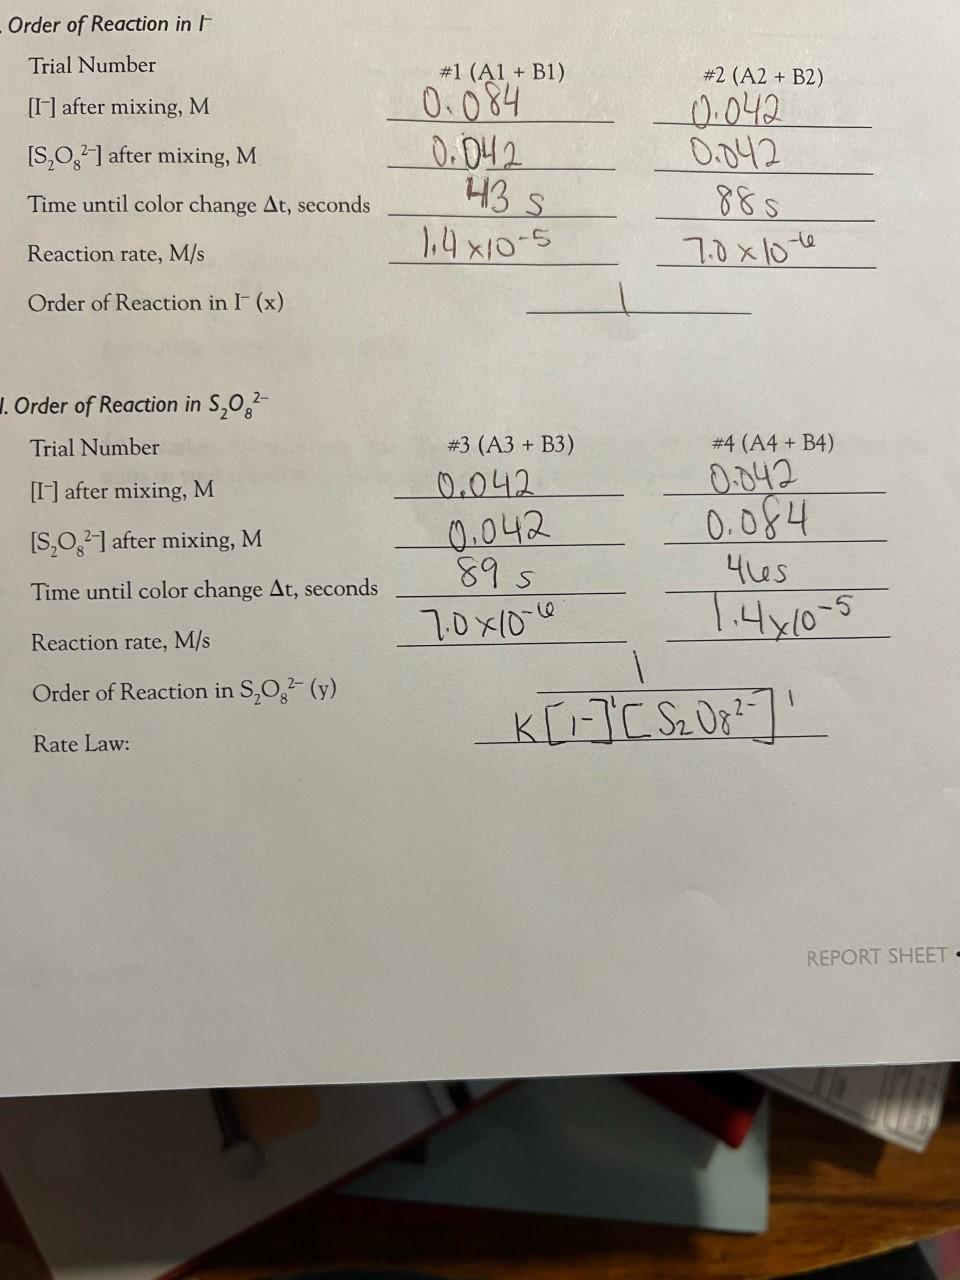 . Order of Reaction in I⁻
Trial Number #1 (A1 + B1) #2 (A2 + B2)
[I⁻] after mixing, M 0.084 0.042
[S₂O₈²⁻] after mixing, M 0.042 0.042
Time until color change Δt, seconds 43 s 88 s
Reaction rate, M/s 1.4 x10⁻⁵ 7.0 x 10⁻⁶
Order of Reaction in I⁻ (x) 1
I. Order of Reaction in S₂O₈²⁻
Trial Number #3 (A3 + B3) #4 (A4 + B4)
[I⁻] after mixing, M 0.042 0.042
[S₂O₈²⁻] after mixing, M 0.042 0.084
Time until color change Δt, seconds 89 s 46s
Reaction rate, M/s 7.0 x10⁻⁶ 1.4x10⁻⁵
Order of Reaction in S₂O₈²⁻ (y) 1
Rate Law: K[I-]¹[S₂O₈²⁻]¹
REPORT SHEET •